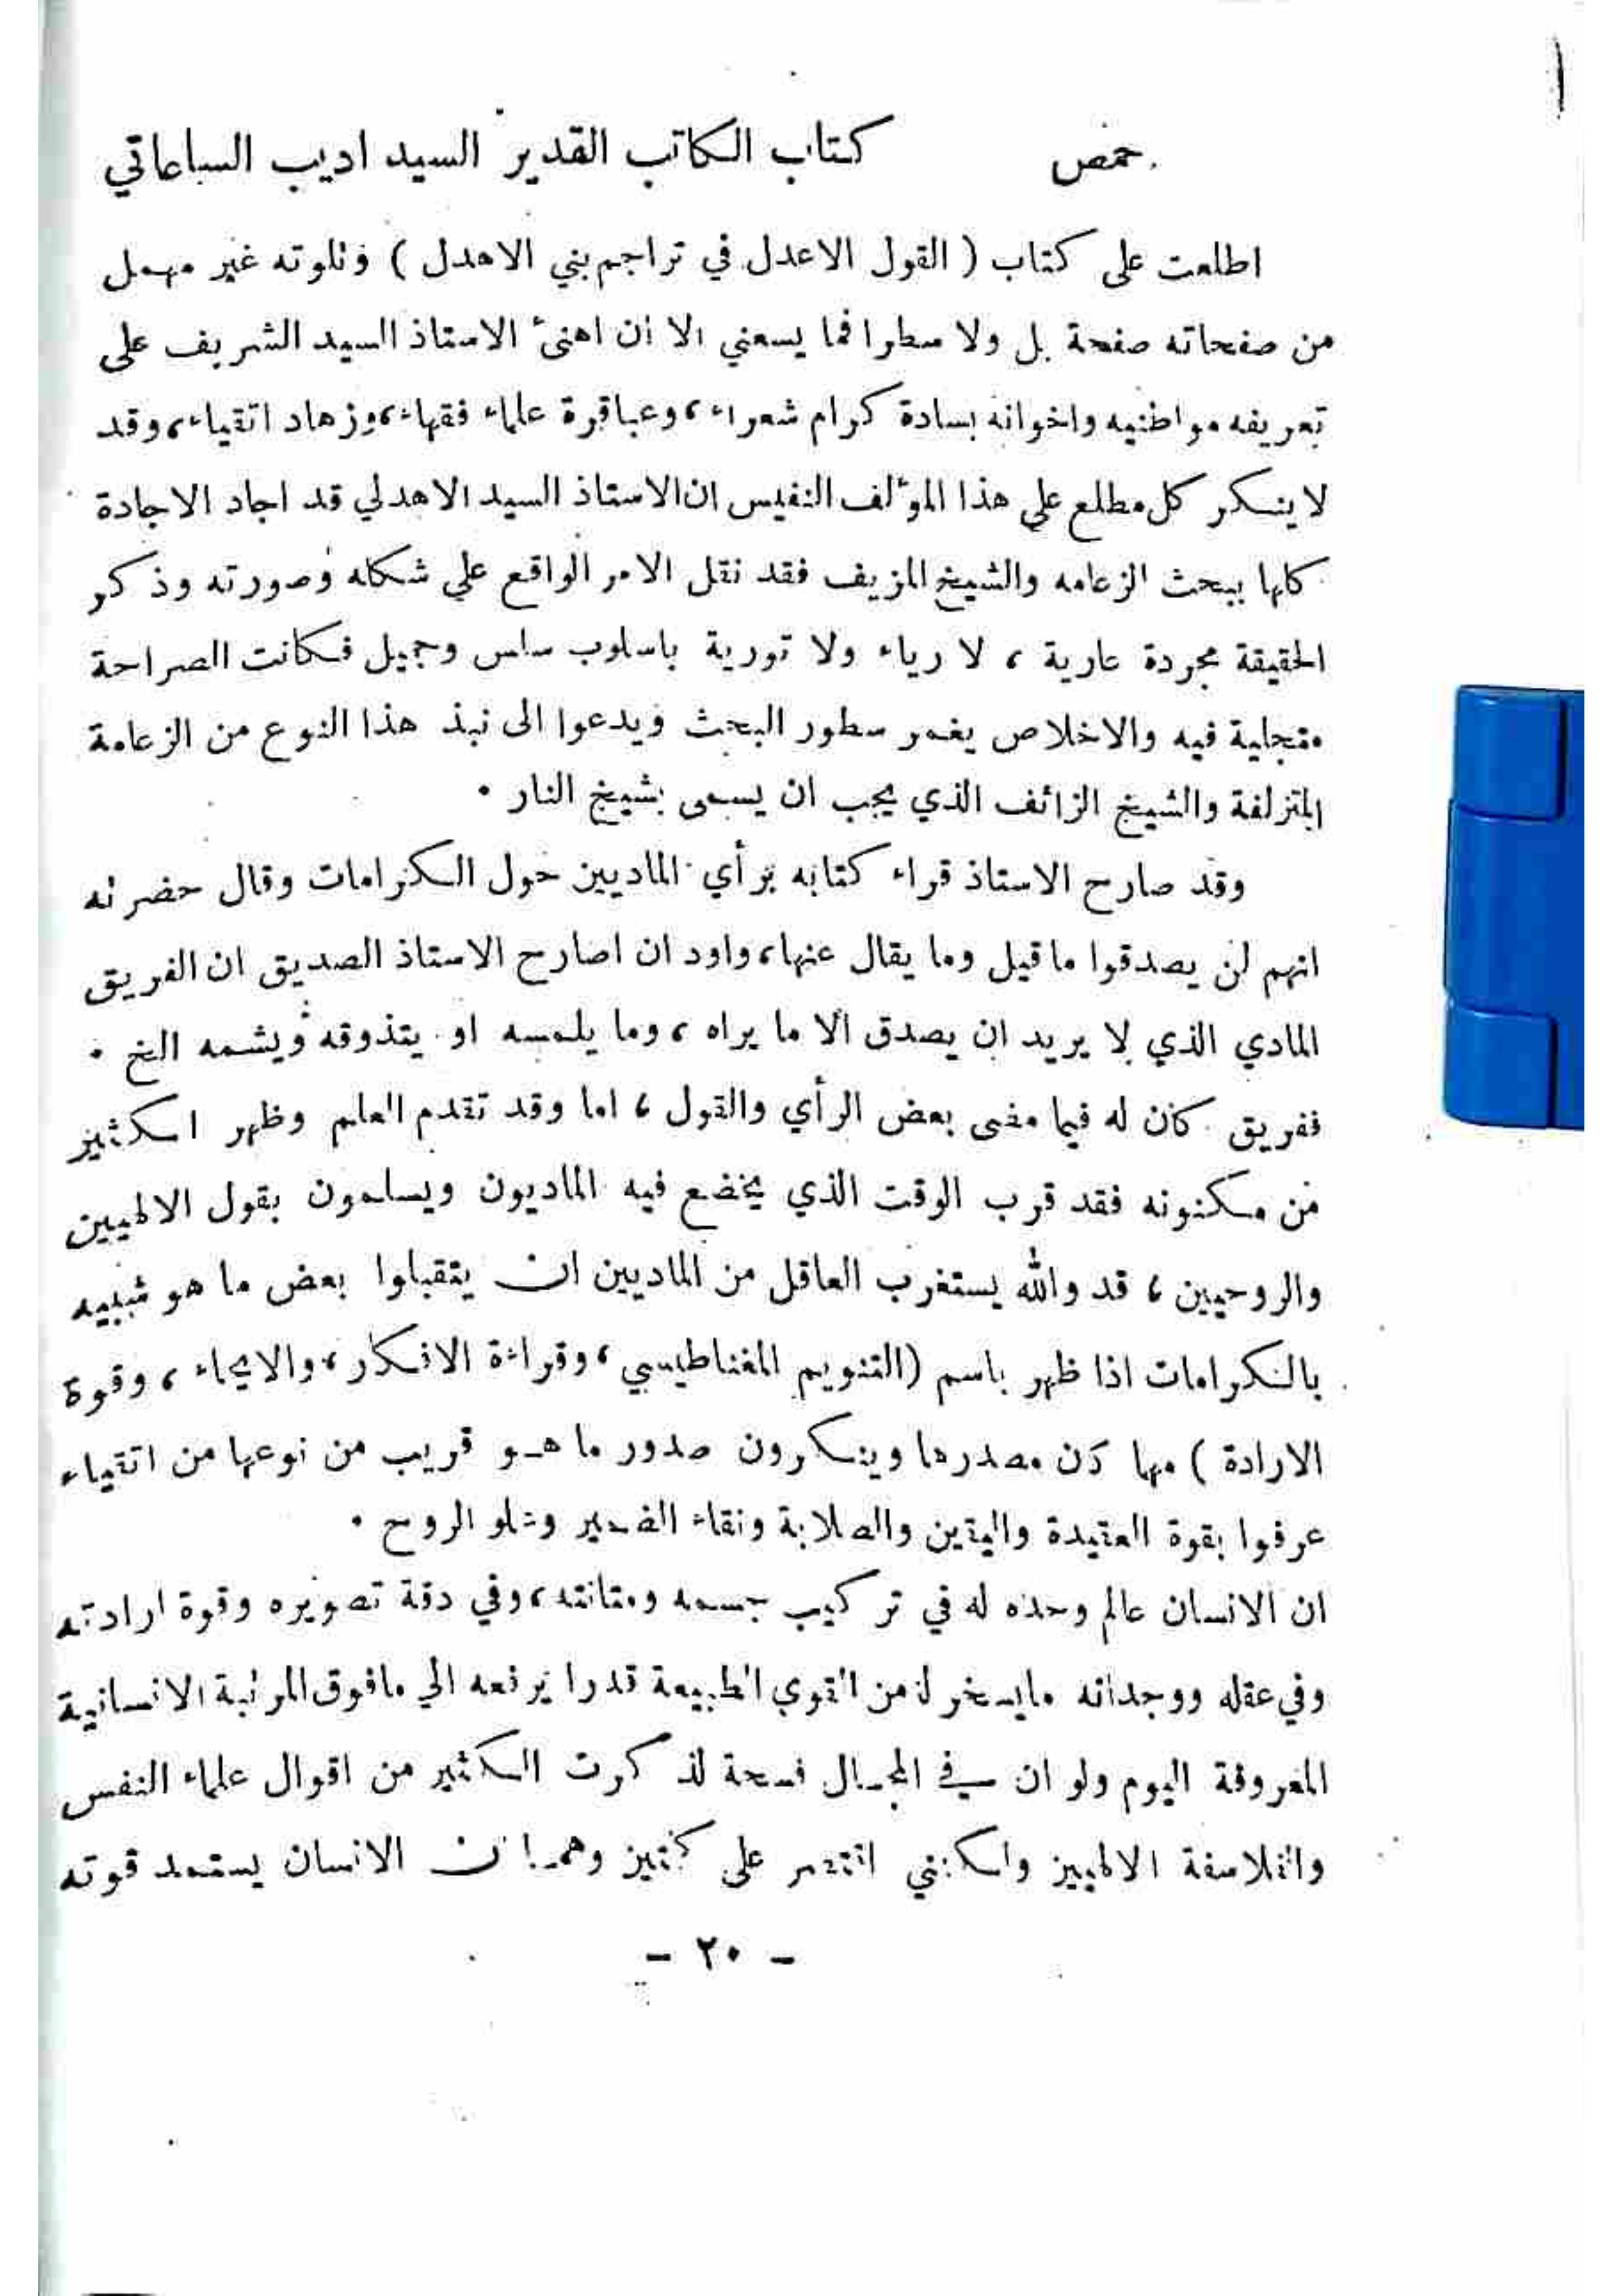 حمص كتاب الكاتب القدير السيد اديب الساعاتي
اطلعت على كتاب ( القول الاعدل في تراجم بني الاهدل ) وتلوته غير مهمل
من صفحاته صفحة بل ولا سطرا فما يسعني الا ان اهنئ الاستاذ السيد الشريف على
تعريفه مواطنيه واخوانه بسادة كرام شعراء ، وعباقرة علماء فقهاء ، وزهاد اتقياء ، وقد
لا ينكر كل مطلع على هذا المؤلف النفيس ان الاستاذ السيد الاهدلي قد اجاد الاجادة
كلها ببحث الزعامه والشيخ المزيف فقد نقل الامر الواقع علي شكله وصورته وذكر
الحقيقة مجردة عارية ، لا رياء ولا تورية باسلوب سلس وجميل فكانت الصراحة
متجلية فيه والاخلاص يغمر سطور البحث ويدعوا الى نبذ هذا النوع من الزعامة
المتزلفة والشيخ الزائف الذي يجب ان يسمى بشيخ النار .
وقد صارح الاستاذ قراء كتابه برأي الماديين حول الكرامات وقال حضرته
انهم لن يصدقوا ما قيل وما يقال عنها ، واود ان اصارح الاستاذ الصديق ان الفريق
المادي الذي لا يريد ان يصدق الا ما يراه ، وما يلمسه او يتذوقه ويشمه الخ .
ففريق كان له فيما مضى بعض الرأي والقول ، اما وقد تقدم العلم وظهر الكثير
من مكنونه فقد قرب الوقت الذي يخضع فيه الماديون ويسلمون بقول الالهيين
والروحيين ، قد والله يستغرب العاقل من الماديين ان يتقبلوا بعض ما هو شبيه
بالكرامات اذا ظهر باسم (التنويم المغناطيسي ، وقراءة الافكار ، والايحاء ، وقوة
الارادة ) مهما كان مصدرها وينكرون صدور ما هو قريب من نوعها من اتقياء
عرفوا بقوة العقيدة واليقين والصلابة ونقاء الضمير وعلو الروح .
ان الانسان عالم وحده له في تركيب جسمه ومتانته ، وفي دقة تصويره وقوة ارادته
وفي عقله ووجدانه ما يسخر له من القوي الطبيعة قدرا يرفعه الي ما فوق المرتبة الانسانية
المعروفة اليوم ولو ان في المجال فسحة لذكرت الكثير من اقوال علماء النفس
والفلاسفة الالهيين ولكنني اقتصر على وهما ان الانسان يستمد قوته
- ٢٠ -